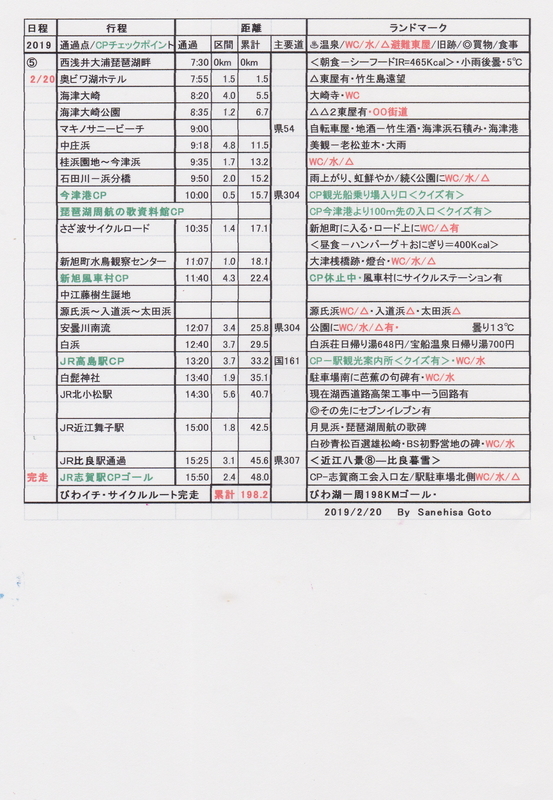 日程 行程 距離 ランドマーク
2019 通過点/CPチェックポイント 通過 区間 累計 主要道 ♨温泉/WC/水/△避難東屋/旧跡/◎買物/食事
⑤ 西浅井大浦琵琶湖畔 7:30 0km 0km <朝食ーシーフードIR=465Kcal>・小雨後曇・5℃
2/20 奥ビワ湖ホテル 7:55 1.5 1.5 △東屋有・竹生島遠望
海津大崎 8:20 4.0 5.5 大崎寺・WC
海津大崎公園 8:35 1.2 6.7 △△2東屋有・OO街道
マキノサニービーチ 9:00 県54 自転車屋・地酒ー竹生酒・海津浜石積み・海津港
中庄浜 9:18 4.8 11.5 美観ー老松並木・大雨
桂浜園地〜今津浜 9:35 1.7 13.2 WC/水/△
石田川ー浜分橋 9:50 2.0 15.2 雨上がり、虹鮮やか/続く公園にWC/水/△
今津港CP 10:00 0.5 15.7 県304 CP観光船乗り場入り口<クイズ有>
琵琶湖周航の歌資料館CP CP今津港より100m先の入口<クイズ有>
さざ波サイクルロード 10:35 1.4 17.1 新旭町に入る・ロード上にWC/△有
<昼食ーハンバーグ+おにぎり=400Kcal>
新旭町水鳥観察センター 11:07 1.0 18.1 大津桟橋跡・燈台・WC/水/△
新旭風車村CP 11:40 4.3 22.4 CP休止中・風車村にサイクルステーション有
中江藤樹生誕地
源氏浜〜入道浜〜太田浜 源氏浜WC/△・入道浜△・太田浜△
安曇川南流 12:07 3.4 25.8 県304 公園にWC/水/△有・ 曇り13℃
白浜 12:40 3.7 29.5 白浜荘日帰り湯648円/宝船温泉日帰り湯700円
JR高島駅CP 13:20 3.7 33.2 国161 CPー駅観光案内所<クイズ有>・WC/水
白髭神社 13:40 1.9 35.1 駐車場南に芭蕉の句碑有・WC/水
JR北小松駅 14:30 5.6 40.7 現在湖西道路高架工事中ーう回路有
◎その先にセブンイレブン有
JR近江舞子駅 15:00 1.8 42.5 月見浜・琵琶湖周航の歌碑
白砂青松百選雄松崎・BS初野営地の碑・WC/水
JR比良駅通過 15:25 3.1 45.6 県307 <近江八景⑧―比良暮雪>
完走 JR志賀駅CPゴール 15:50 2.4 48.0 CP-志賀商工会入口左/駅駐車場北側WC/水/△
びわイチ・サイクルルート完走 累計 198.2 びわ湖一周198KMゴール・
2019/2/20 By Sanehisa Goto